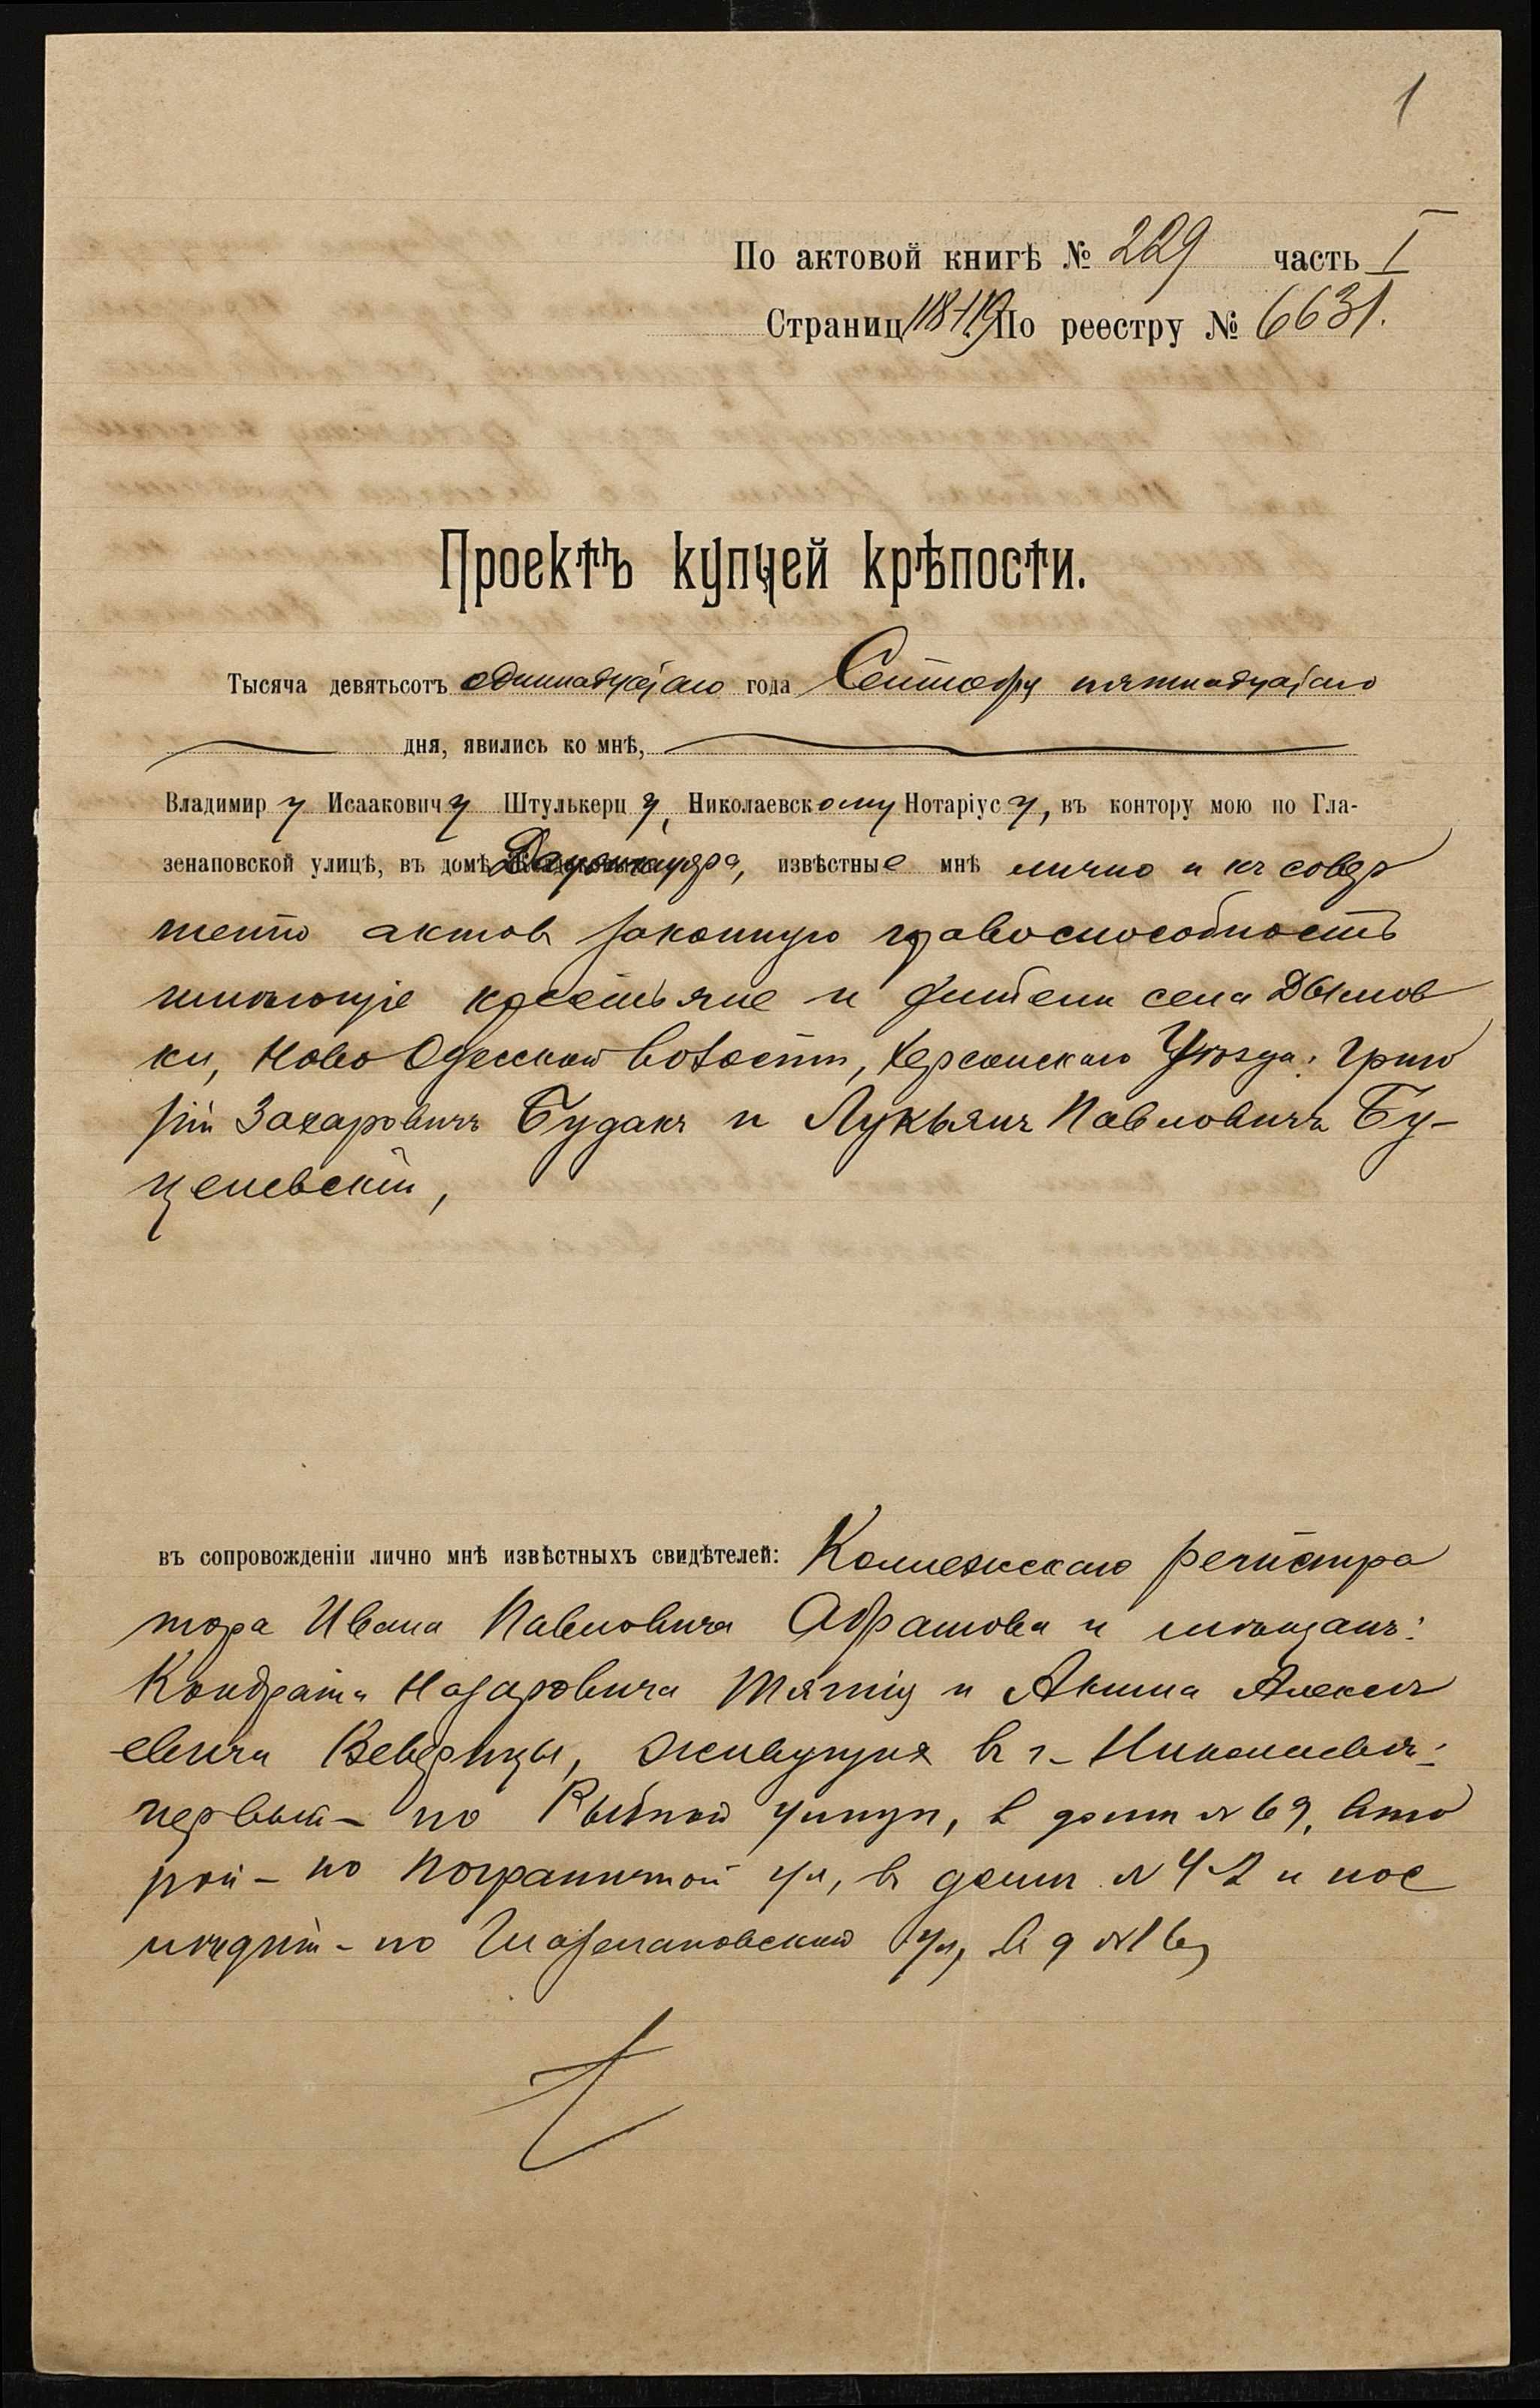 1
По актовой книгѣ № 229 часть I
Страниц 118-119 По реестру № 6631.
Проектъ купчей крѣпости.
Тысяча девятьсотъ одиннадцатаго года Сентября пятнадцатаго
дня, явились ко мнѣ,
Владимиру Исааковичу Штулькерцу, Николаевскому Нотаріусу, въ контору мою по Гла-
зенаповской улицѣ, въ домѣ извѣстные мнѣ лично и къ совер
шенію актовъ законную правоспособность
имѣющіе крестьяне и жители села Дымов
ки, Ново Одесской волости, Херсонскаго Уѣзда: Григо
рій Захаровичъ Будакъ и Лукьянъ Павловичъ Бу-
целевскій,
въ сопровожденіи лично мнѣ извѣстныхъ свидѣтелей: Коллежскаго регистра
тора Ивана Павловича Абрамова и мѣщанъ:
Кондрата Назаровича и Акима Алексѣ
евича живущихъ въ г. Николаевѣ:
первый - по Рыбной улицѣ, в домѣ № 69, вто
рой - по Пограничной ул, въ домѣ № 42 и пос
лѣдній - по ул, въ д № 16,